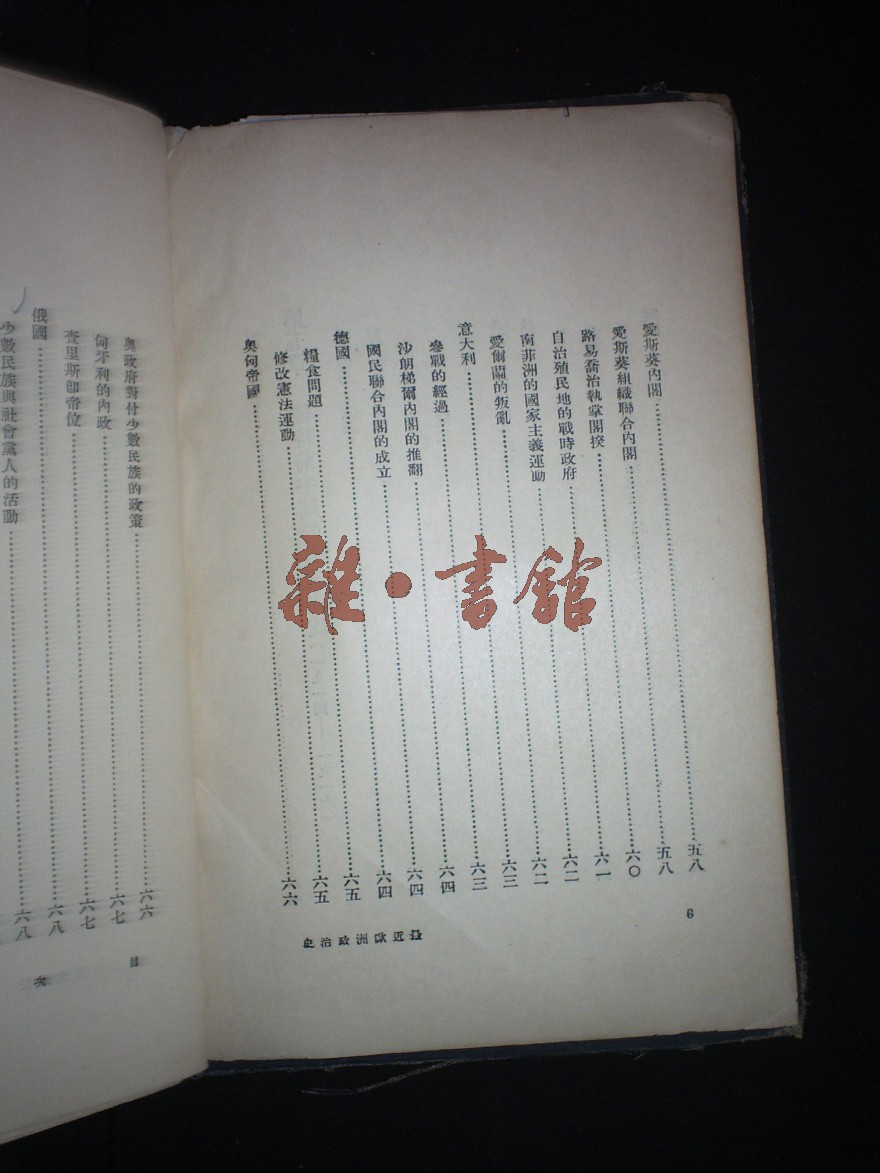 愛斯葵內閣……五八
愛斯葵組織聯合內閣……五八
路易喬治執掌閣揆……六〇
自治殖民地的戰時政府……六一
南非洲的國家主義運動……六二
愛爾蘭的叛亂……六二
意大利……六三
參戰的經過……六三
沙朗梯爾內閣的推翻……六四
國民聯合內閣的成立……六四
德國……六四
糧食問題……六五
修改憲法運動……六五
奧匈帝國……六六
最近歐洲政治史
6
奧政府對付少數民族的政策……六六
匈牙利的內政……六七
查里斯卽帝位……六七
俄國……六八
少數民族與社會黨人的活動……六八
目次
雜·書館